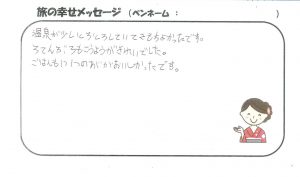 旅の幸せメッセージ (ペンネーム : )
温泉が少しとろとろしていてきもちよかったです。
ろてんぶろもこうようがきれいでした。
ごはんも1つ1つのあじがおいしかったです。